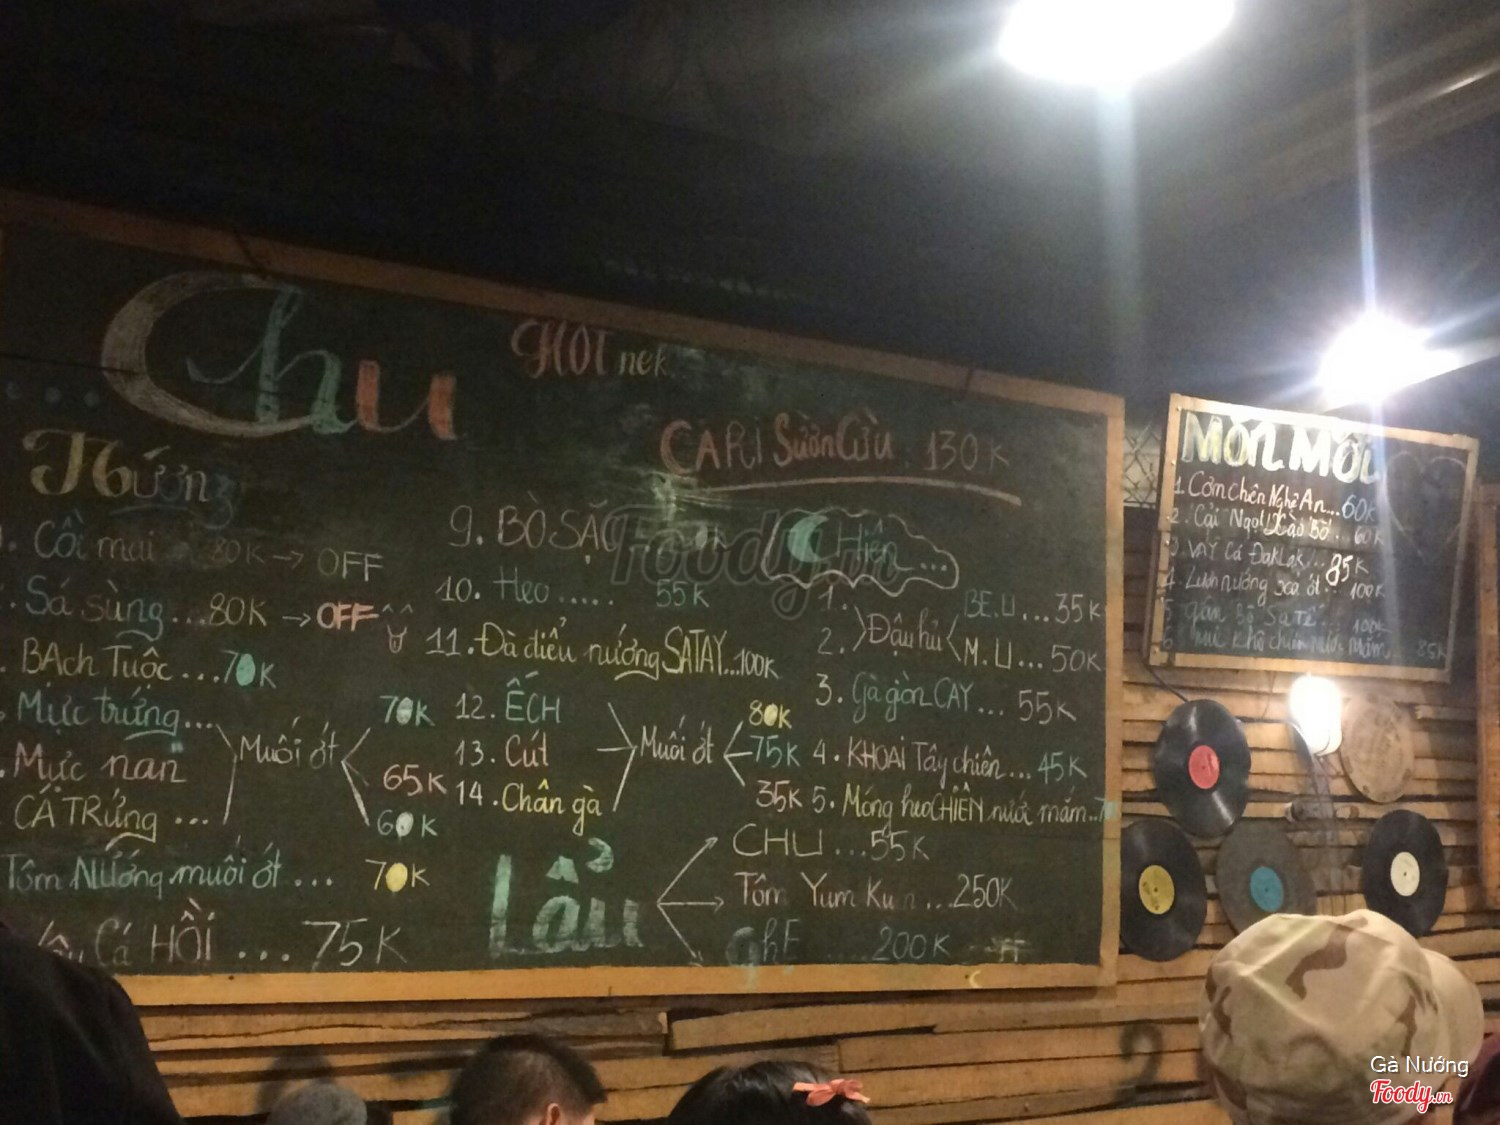 Chu
HOT nek
CARI SườN Cừu 130K
Nướng
Cồi mai 80K → OFF
Sá sùng...80K → OFF
BẠch Tuộc...70K
Mực trứng...
Mực nan
CÁ TRứng ...
Muối ớt
70K
65K
60K
Tôm NướNg muối ớt ... 70K
Cá HỒI ... 75K
9. BÒ
10. Heo...... 55K
11. Đà điểu nướng SATAY...100K
12. ẾCH
13. Cút
14. Chân gà
Muối ớt
80K
75K
35K
Lẩu
CHU ...55K
Tôm Yum Kun ...250K
GhE .....200K
Chiên ...
1.
2.
Đậu hủ
BE.U...35K
M.U...50K
3. Gà giòn CAY ... 55K
4. KHOAI Tây chiên... 45K
5. Móng heo CHIÊN nước mắm..
MÓN MỚI
1. Cơm chiên Nghệ An...60K
2. Cải Ngọt Xào Bò. 60K
3. VÂY Cá ĐakLak... 85K
4. Lươn nướng sả ớt.. 100K
5. gân Bò Sa Tế... 100K
85K
Foody.vn
Gà Nướng
Foody.vn